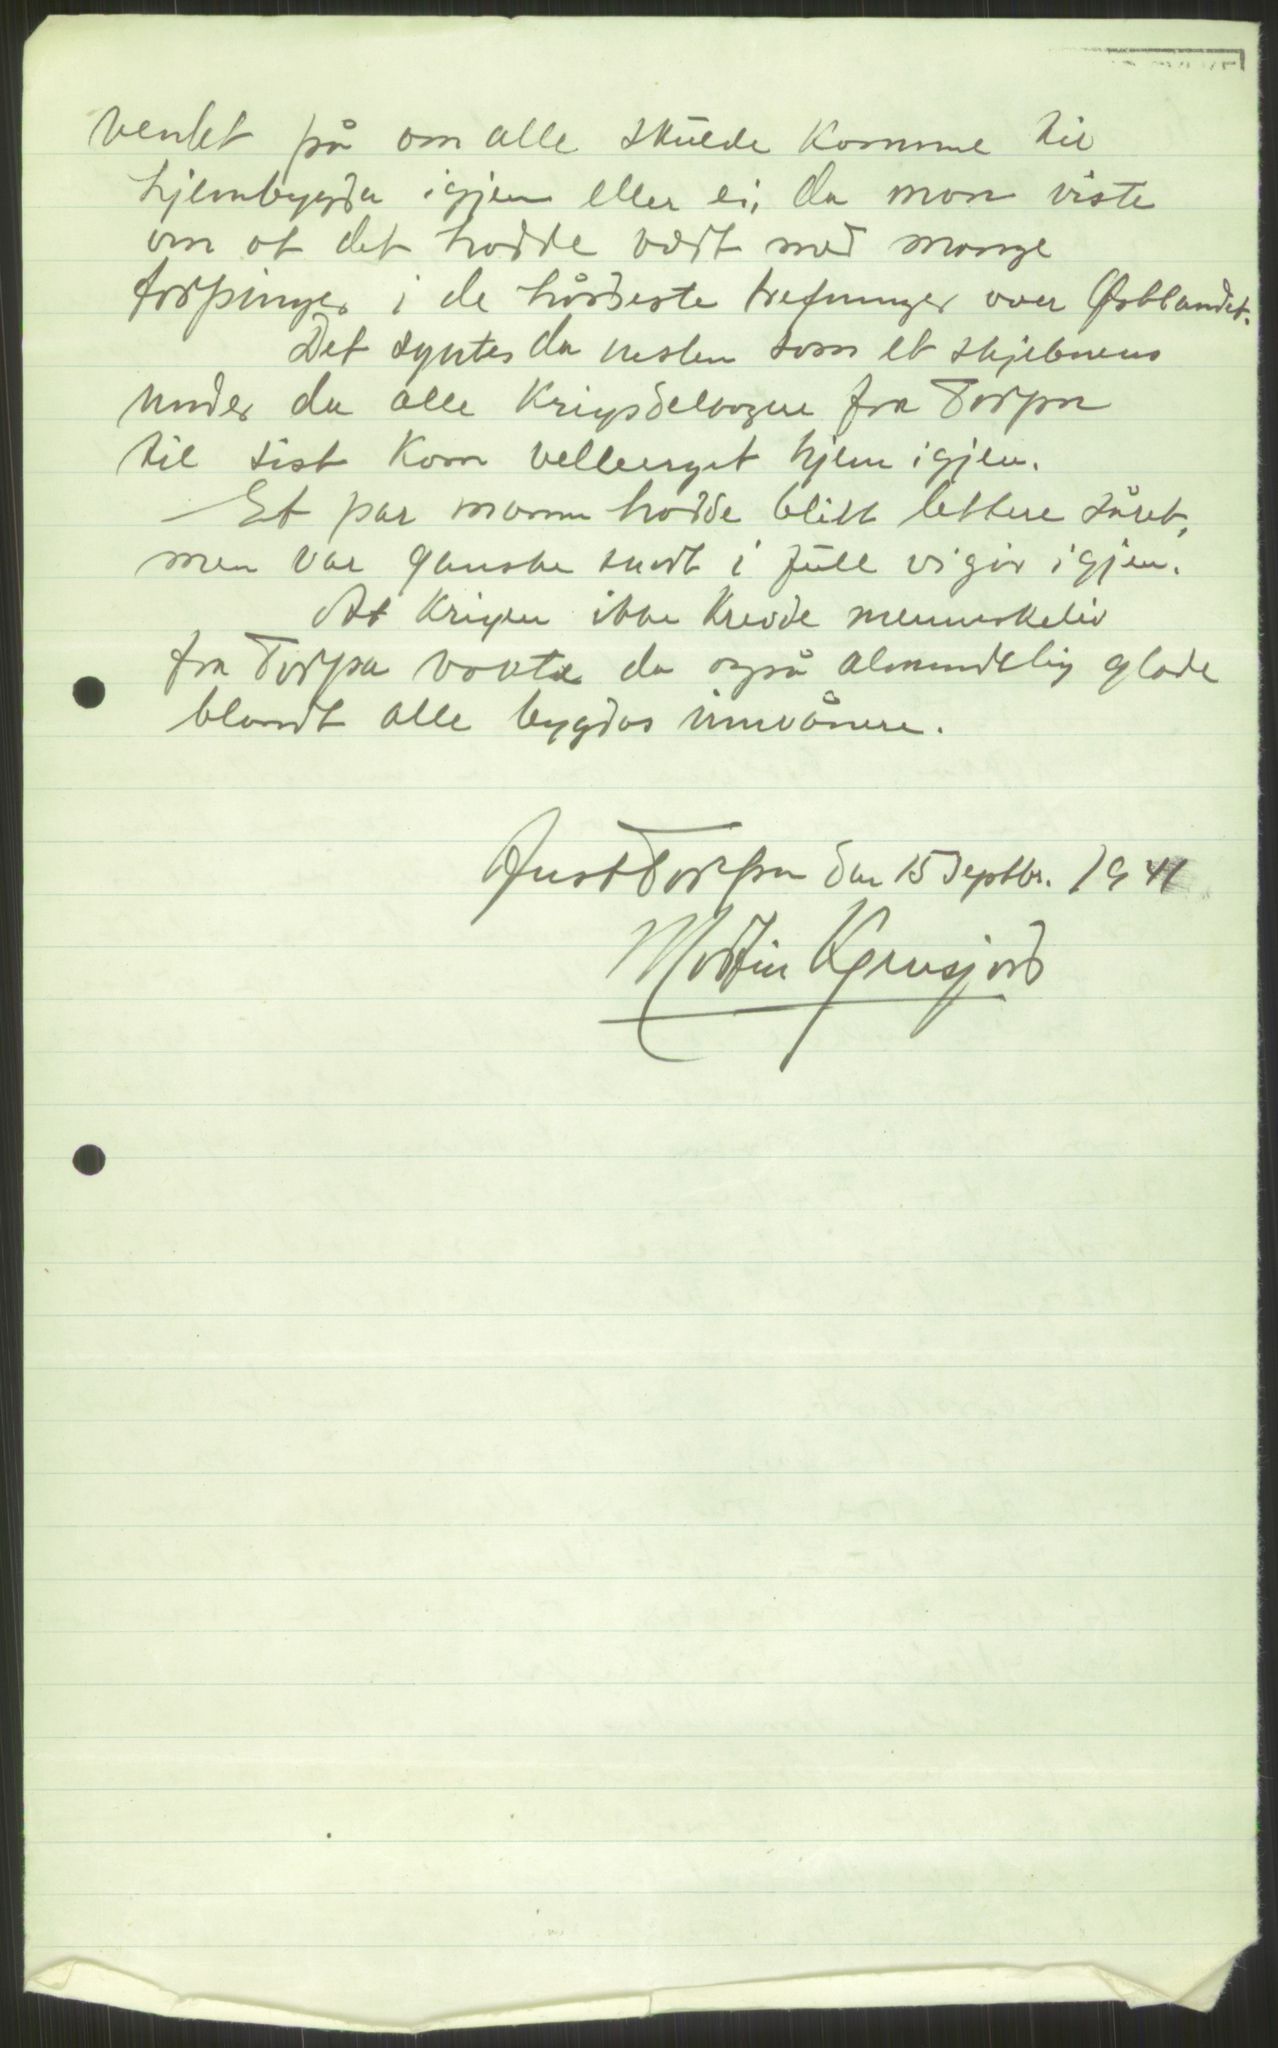 ventet på om alle skulde komme til
hjembygda igjen eller ei, da man viste
om at det hadde vært med mange
torpinger i de hårdeste trefninger over Østlandet.
Det syntes da nesten som et skjebnens
under da alle krigsdeltagere fra Torpa
til sist kom vellberget hjem igjen.
Et par mann hadde blitt lettere såret,
men var ganske snart i full vigør igjen.
At krigen ikke krevde menneskeliv
fra Torpa vakte da også almindelig glede
blandt alle bygdas innvånere.
Aust Torpa den 15 Septbr. 1941
Martin